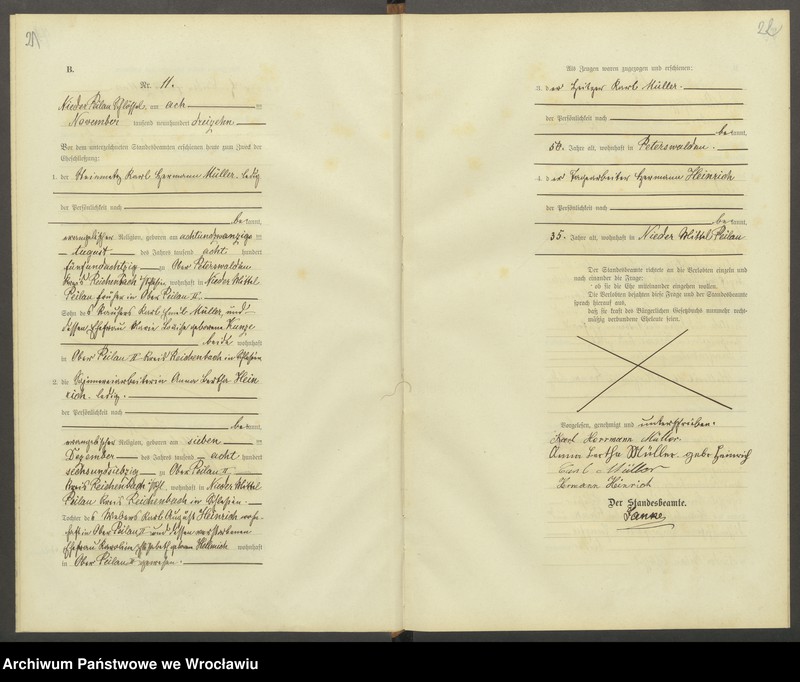 21
B.
Nr. 11.
Nieder Peilau Schlössel, am ach ten
November tausend neunhundert dreizehn
Vor dem unterzeichneten Standesbeamten erschienen heute zum Zweck der
Eheschließung:
1. der Steinmetz Karl Hermann Müller, ledig
der Persönlichkeit nach
be kannt,
evangelischer Religion, geboren am achtundzwanzigs ten
August des Jahres tausend acht hundert
fünfundachtzig zu Ober Peterswaldau
Kreis Reichenbach, wohnhaft in Nieder Mittel
Peilau früher in Ober Peilau II
Sohn des Karl Emil Müller und
dessen Ehefrau Marie Louise geborene Kunze
beide wohnhaft
in Ober Peilau II Kreis Reichenbach in Schlesien
2. die Spinnereiarbeiterin Anna Bertha Hein
rich, ledig.
der Persönlichkeit nach
be kannt,
evangelischer Religion, geboren am sieben ten
Dezember des Jahres tausend acht hundert
sechsundsiebzig zu Ober Peilau II
Kreis Reichenbach, wohnhaft in Nieder Mittel
Peilau Kreis Reichenbach in Schlesien.
Tochter des Webers Karl August Heinrich wohn
haft in Ober Peilau II und dessen verstorbenen
Ehefrau Karoline Elisabeth geboren Hellmich wohnhaft
in Ober Peilau II gewesen.
22
Als Zeugen waren zugezogen und erschienen:
3. der Heitzer Karl Müller.
der Persönlichkeit nach
be kannt,
50. Jahre alt, wohnhaft in Peterswaldau.
4. der Fabrikarbeiter Hermann Heinrich
der Persönlichkeit nach
be kannt,
35. Jahre alt, wohnhaft in Nieder Mittel Peilau
Der Standesbeamte richtete an die Verlobten einzeln und
nach einander die Frage:
ob sie die Ehe miteinander eingehen wollen.
Die Verlobten bejahten diese Frage und der Standesbeamte
sprach hierauf aus,
daß sie kraft des Bürgerlichen Gesetzbuchs nunmehr recht-
mäßig verbundene Eheleute seien.
Vorgelesen, genehmigt und unterschrieben.
Karl Herrmann Müller
Anna Bertha Müller geb. Heinrich
Carl Müller
Hermann Heinrich
Der Standesbeamte.
Archiwum Państwowe we Wrocławiu